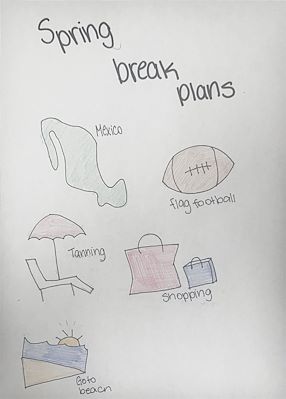 Spring
break
plans
Mexico
flag football
Tanning
Shopping
Go to
beach